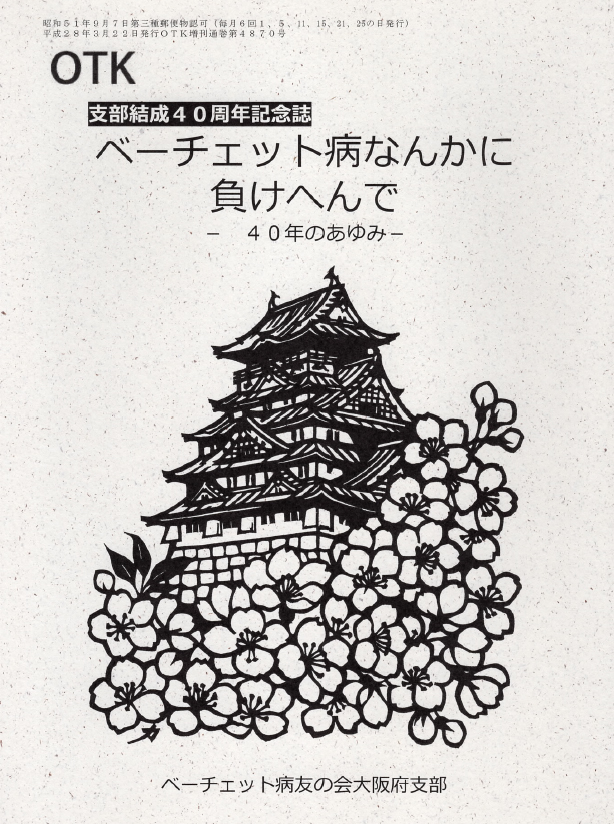 昭和51年9月7日第三種郵便物認可（毎月6回1、5、11、15、21、25の日発行）
平成28年3月22日発行OTK増刊通巻第4870号
OTK
支部結成４０周年記念誌
ベーチェット病なんかに
負けへんで
－　４０年のあゆみ－
ベーチェット病友の会大阪府支部